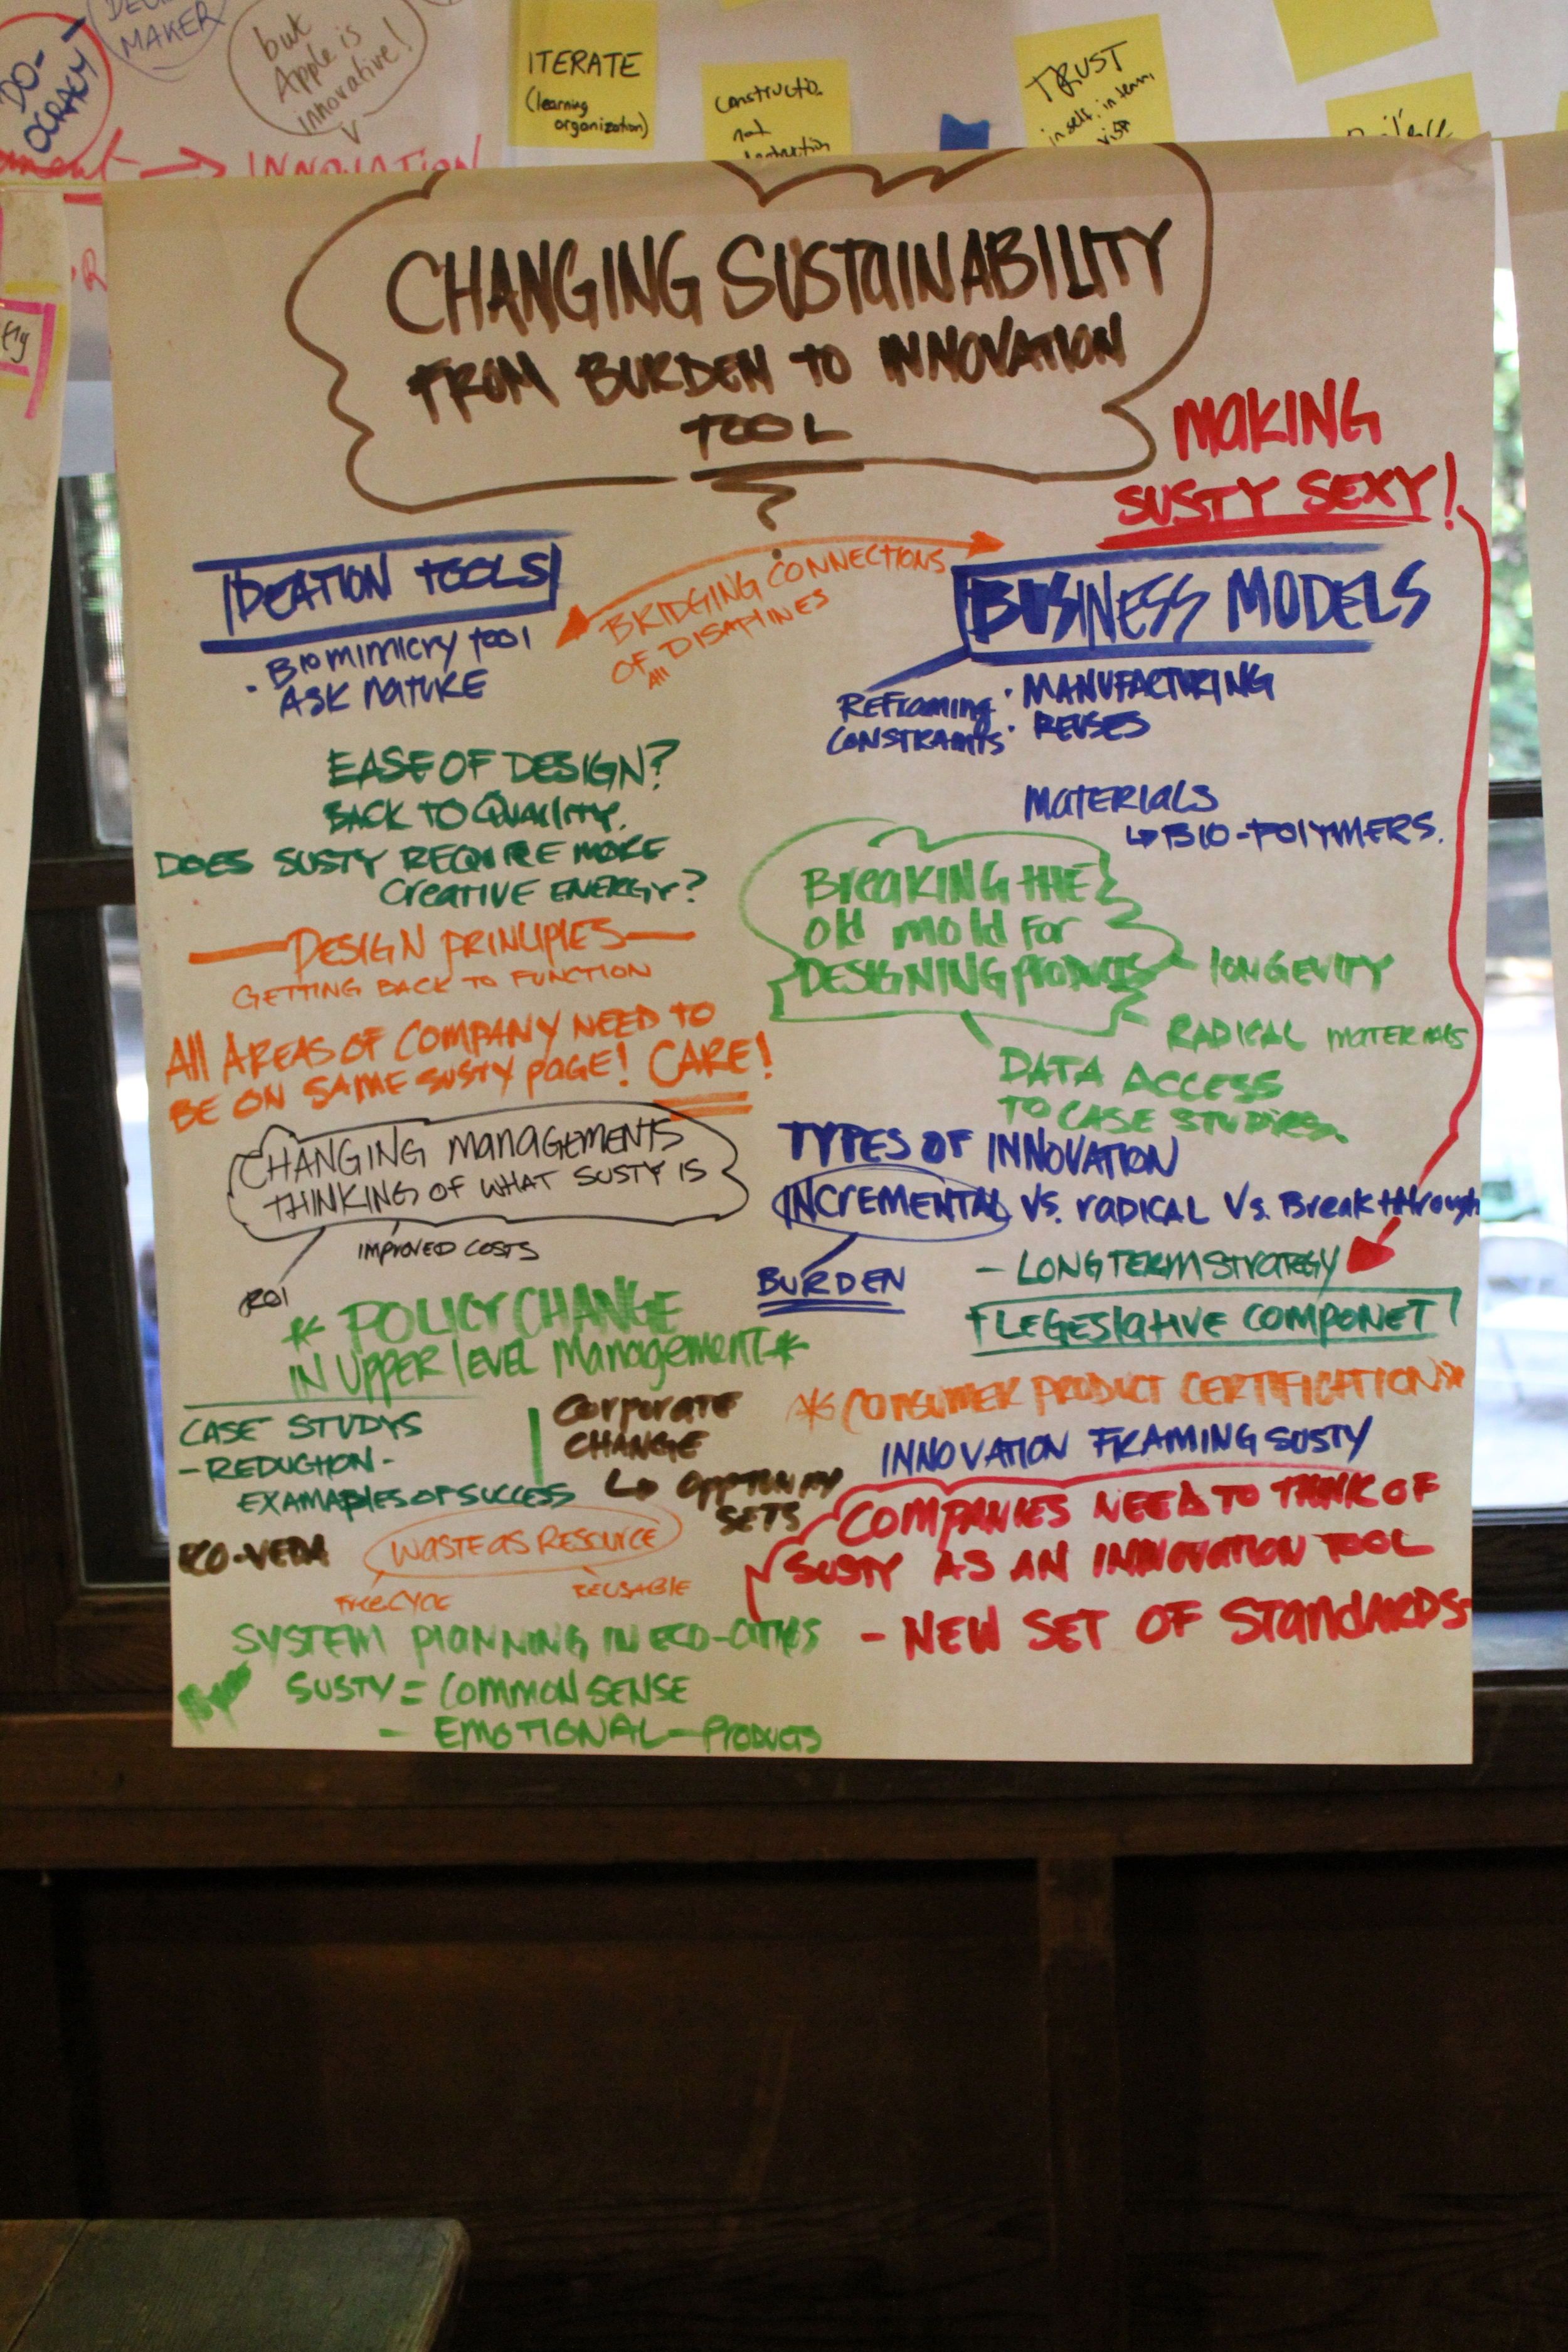 DO-
OCRACY
MAKER
but
Apple is
innovative!
INNOVATION
ITERATE
(learning
organization)
not
TRUST
in self, in team,
CHANGING SUSTAINABILITY
FROM BURDEN TO INNOVATION
TOOL
MAKING
SUSTY SEXY!
IDEATION TOOLS
· BIOMIMICRY TOOL
ASK NATURE
BRIDGING CONNECTIONS
OF All DISAPLINES
BUSINESS MODELS
REFRAMING
CONSTRAINTS
· MANUFACTURING
· REUSES
MATERIALS
↳ BIO-POLYMERS.
EASE OF DESIGN?
BACK TO QUALITY.
DOES SUSTY REQUIRE MORE
CREATIVE ENERGY?
BREAKING THE
Old mold For
DESIGNING PRODUCTS
LONGEVITY
RADICAL MATERIALS
DATA ACCESS
TO CASE STUDIES.
DESIGN PRINCIPLES
GETTING BACK TO FUNCTION
All AREAS OF COMPANY NEED TO
BE ON SAME SUSTY PAGE! CARE!
CHANGING MANAGEMENTS
THINKING OF WHAT SUSTY IS
IMPROVED COSTS
ROI
TYPES OF INNOVATION
INCREMENTAL VS. RADICAL VS. Breakthrough
BURDEN
- LONG TERM STRATEGY
LEGESLATIVE COMPONET
* POLICY CHANGE
IN UPPER LEVEL Management *
* CONSUMER PRODUCT CERTIFICATION *
CASE STUDYS
- REDUCTION -
EXAMAPLES OF SUCCESS
CORPORATE
CHANGE
↳ OPPTUNITY
SETS
INNOVATION FRAMING SUSTY
COMPANIES NEED TO THINK OF
SUSTY AS AN INNOVATION TOOL
- NEW SET OF STANDARDS-
ECO-VEDA
WASTE AS RESOURCE
FREECYCLE
REUSABLE
SYSTEM PLANNING IN ECO-CITIES
SUSTY = COMMON SENSE
- EMOTIONAL - PRODUCTS